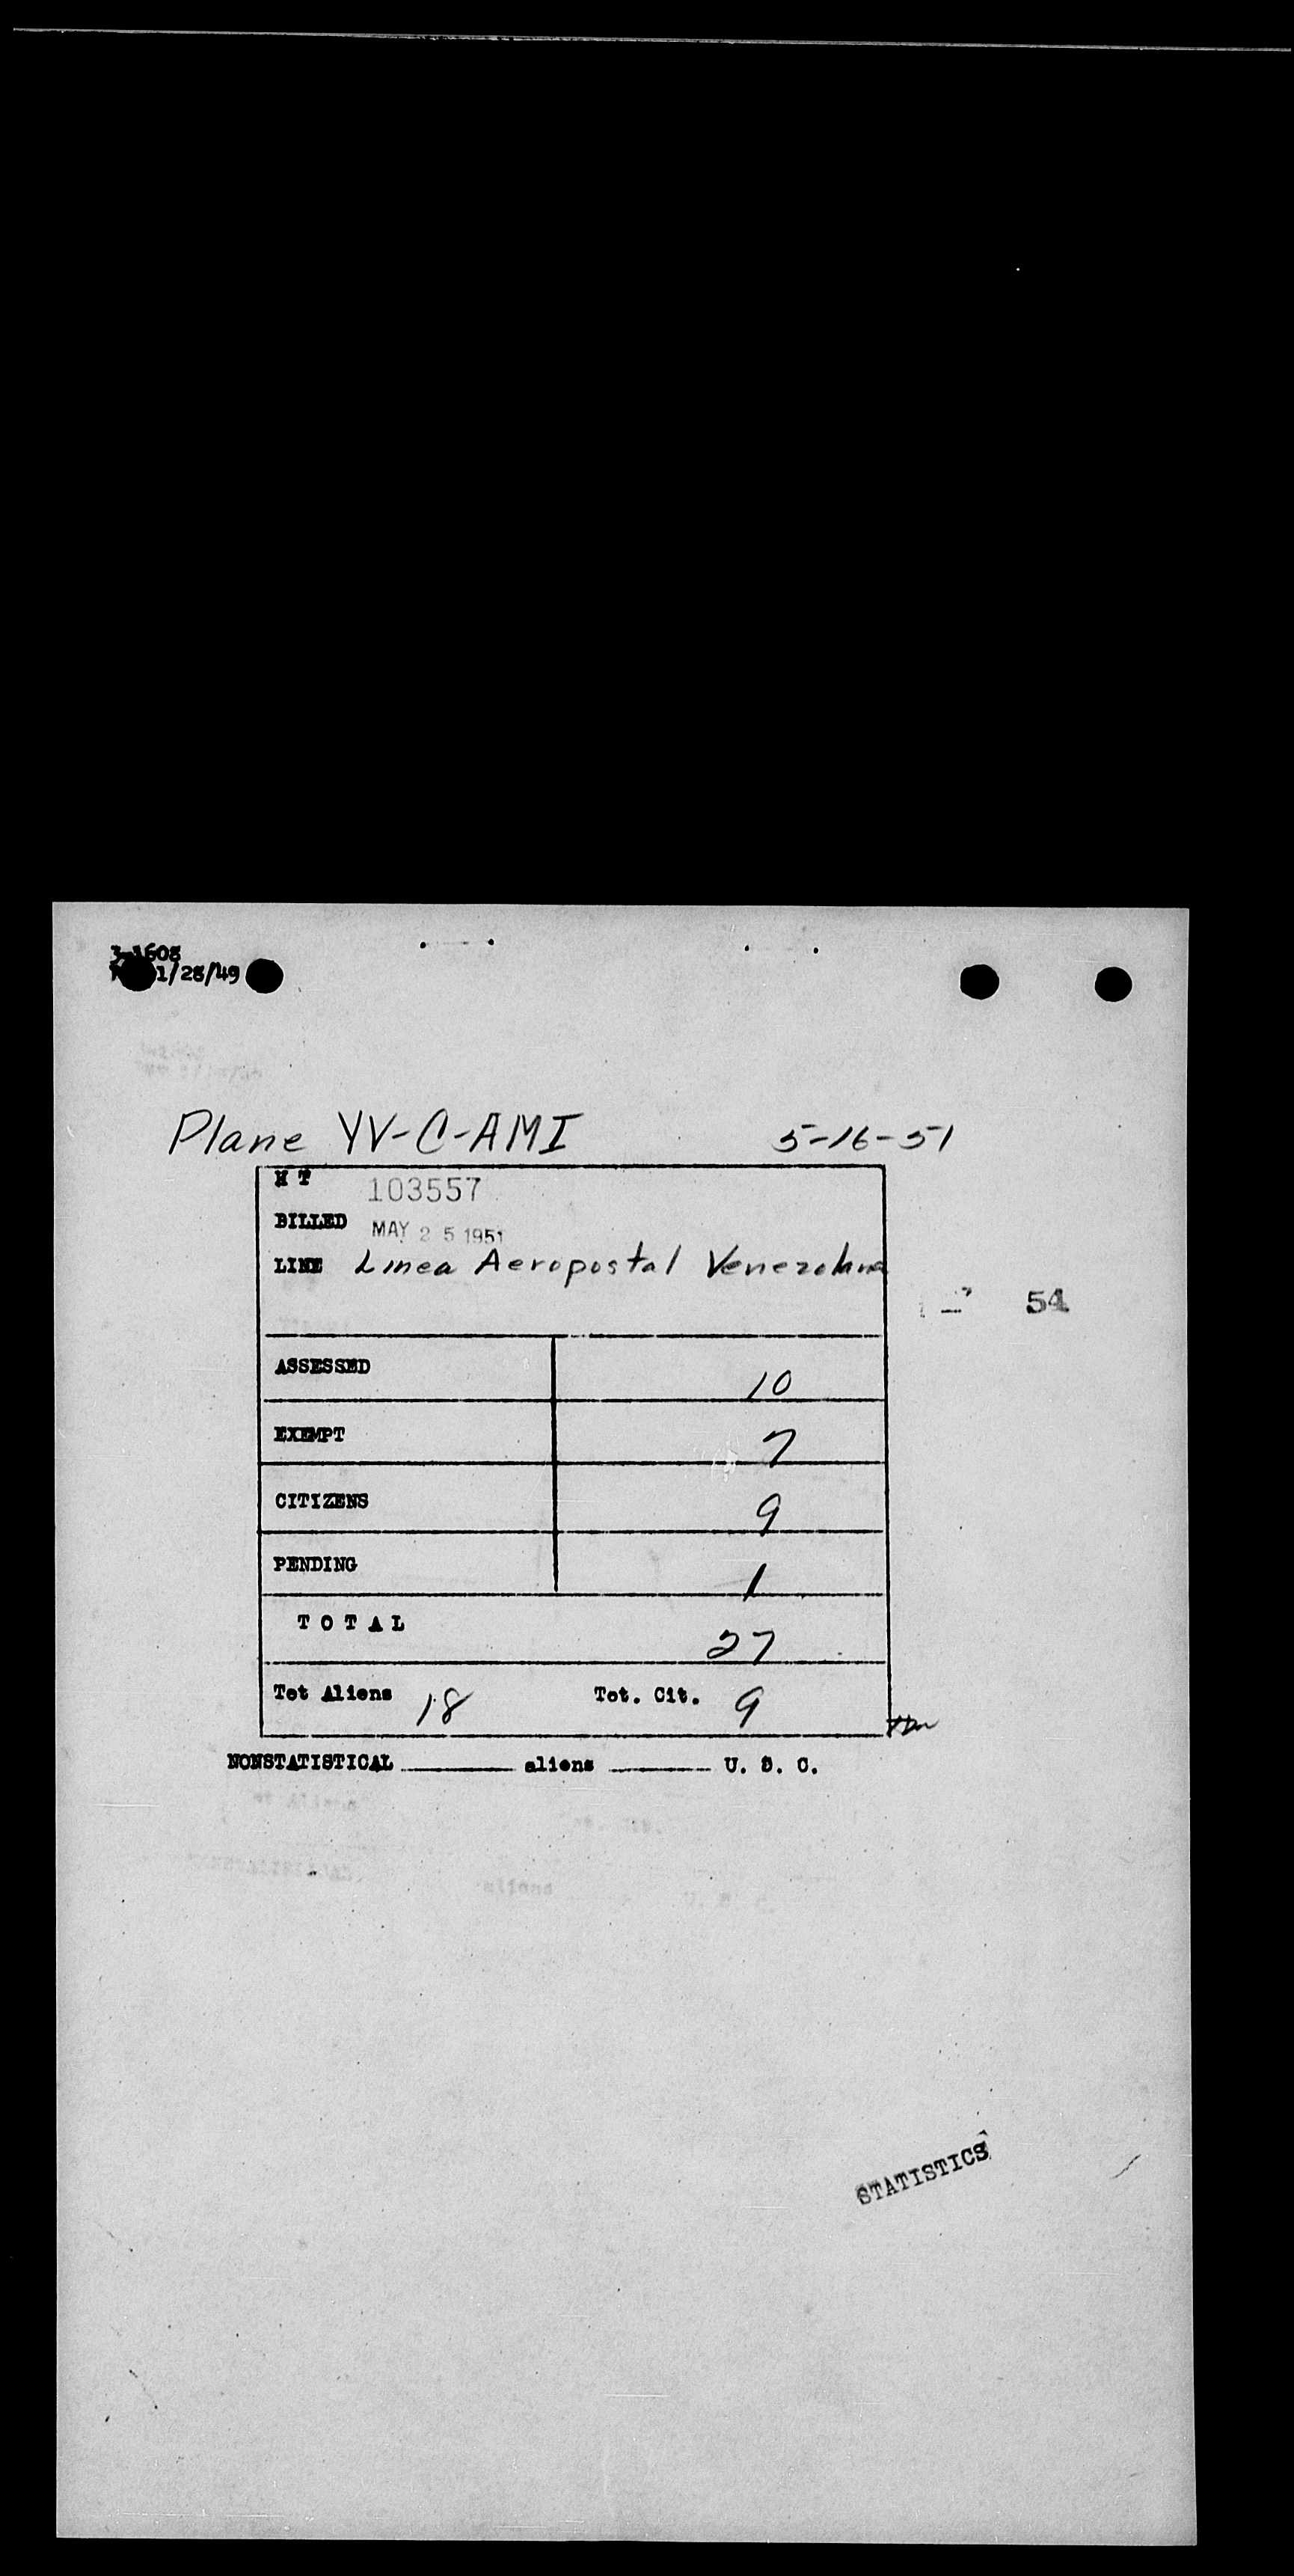 3-1608
1/28/49
Plane YV-C-AMI 5-16-51
H T 103557
BILLED MAY 25 1951
LINE Linea Aeropostal Venezolana
54
ASSESSED 10
EXEMPT 7
CITIZENS 9
PENDING 1
TOTAL 27
Tot Aliens 18 Tot. Cit. 9
NONSTATISTICAL ______ aliens ______ U. S. C.
STATISTICS